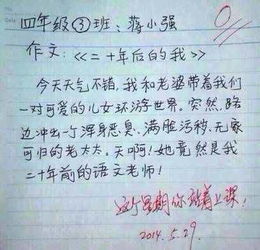 四年级③班:蒋小强
0
作文:《二十年后的我》
今天天气不错,我和老婆带着我们
一对可爱的儿女环游世界,突然,路
边冲出一个浑身恶臭、满脸污秽、无家
可归的老太太,天啊!她竟然是我
二十年前的语文老师!
这个星期你站着上课!
2014.5.29